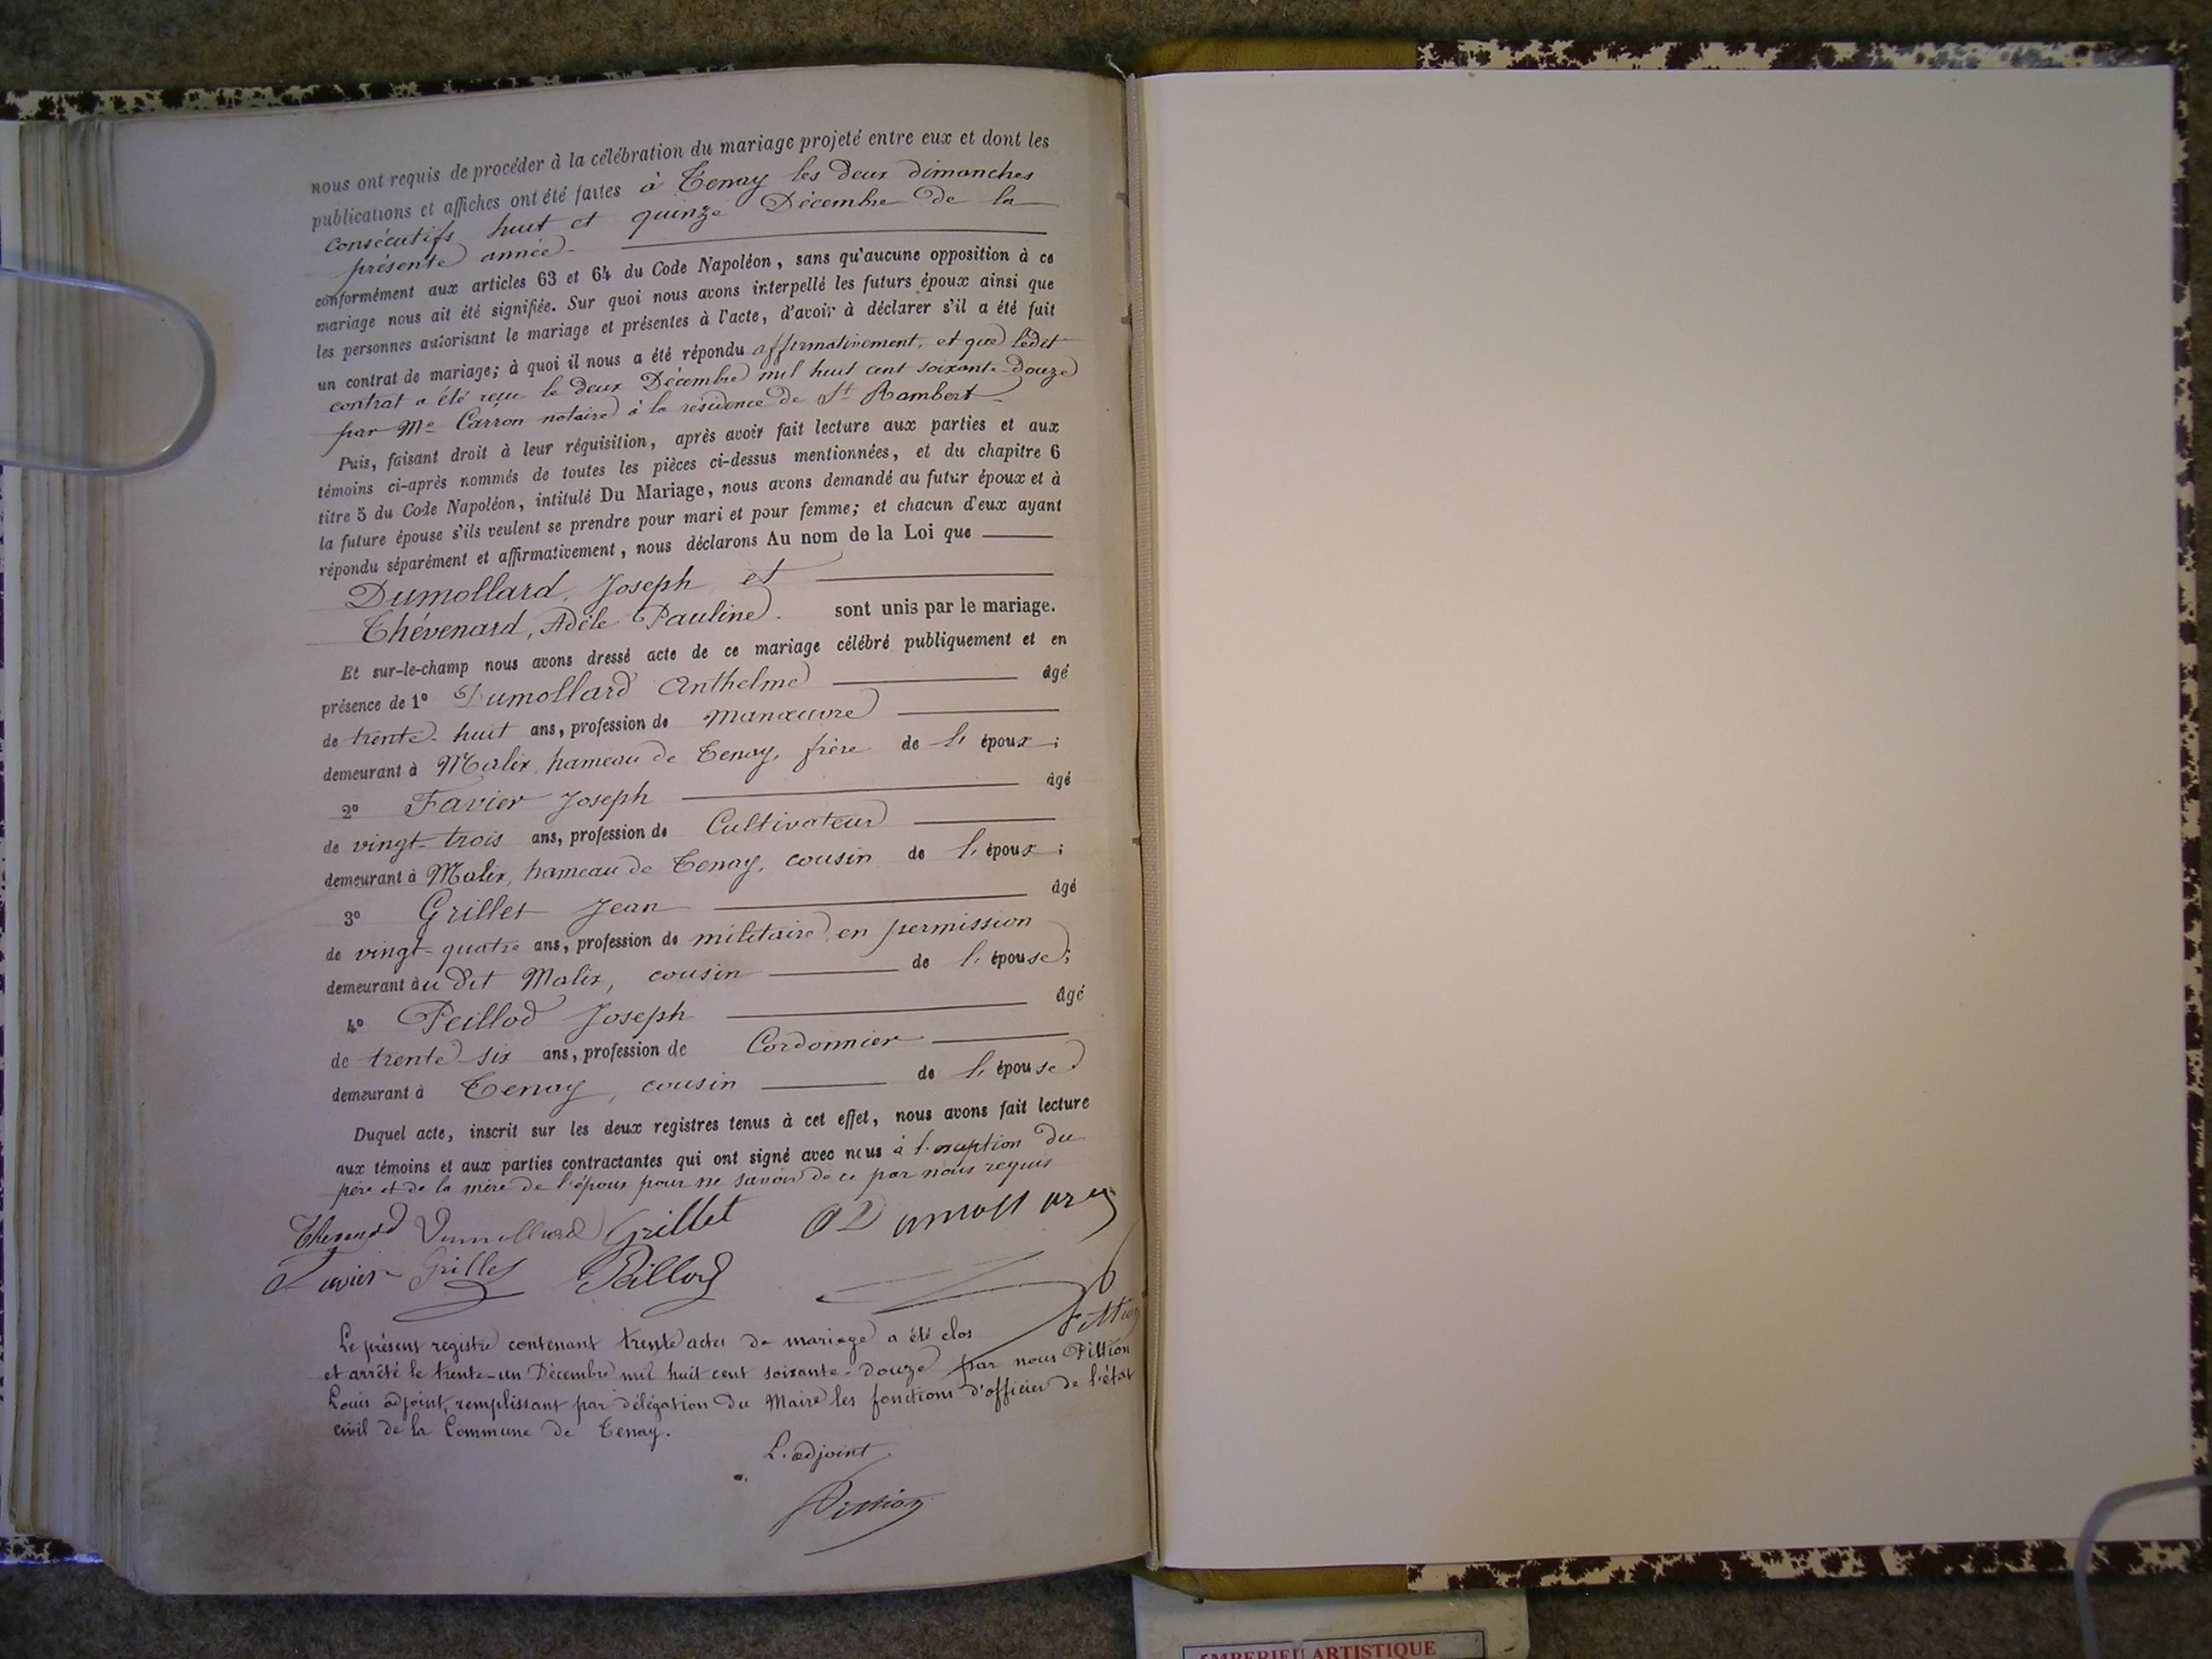 nous ont requis de procéder à la célébration du mariage projeté entre eux et dont les
publications et affiches ont été faites à Tenay les deux dimanches
consécutifs huit et quinze Décembre de la
présente année
conformément aux articles 63 et 64 du Code Napoléon, sans qu'aucune opposition à ce
mariage nous ait été signifiée. Sur quoi nous avons interpellé les futurs époux ainsi que
les personnes autorisant le mariage et présentes à l'acte, d'avoir à déclarer s'il a été fait
un contrat de mariage; à quoi il nous a été répondu affirmativement, et que ledit
contrat a été reçu le deux Décembre mil huit cent soixante-douze
par Me Carron notaire à la résidence de St Rambert
Puis, faisant droit à leur réquisition, après avoir fait lecture aux parties et aux
témoins ci-après nommés de toutes les pièces ci-dessus mentionnées, et du chapitre 6
titre 5 du Code Napoléon, intitulé Du Mariage, nous avons demandé au futur époux et à
la future épouse s'ils veulent se prendre pour mari et pour femme; et chacun d'eux ayant
répondu séparément et affirmativement, nous déclarons Au nom de la Loi que
Dumollard, Joseph et
Thévenard, Adèle Pauline. sont unis par le mariage.
Et sur-le-champ nous avons dressé acte de ce mariage célébré publiquement et en
présence de 1° Dumollard Anthelme âgé
de trente-huit ans, profession de manœuvre
demeurant à Malix, hameau de Tenay, frère de l'époux;
2° Favier Joseph âgé
de vingt-trois ans, profession de Cultivateur
demeurant à Malix, hameau de Tenay, cousin de l'époux;
3° Grillet Jean âgé
de vingt-quatre ans, profession de militaire en permission
demeurant àu dit Malix, cousin de l'épouse;
4° Peillod Joseph âgé
de trente-six ans, profession de Cordonnier
demeurant à Tenay, cousin de l'épouse
Duquel acte, inscrit sur les deux registres tenus à cet effet, nous avons fait lecture
aux témoins et aux parties contractantes qui ont signé avec nous à l'exception du
père et de la mère de l'époux pour ne savoir de ce par nous requis
Thevenard Dumollard Grillet A Dumollard
Favier Grillet Peillod
Pittion
Le présent registre contenant trente actes de mariage a été clos
et arrêté le trente-un Décembre mil huit cent soixante-douze par nous Pittion
Louis adjoint, remplissant par délégation du Maire les fonctions d'officier de l'état
civil de la Commune de Tenay.
L'adjoint
Pittion
AMBERIEU ARTISTIQUE